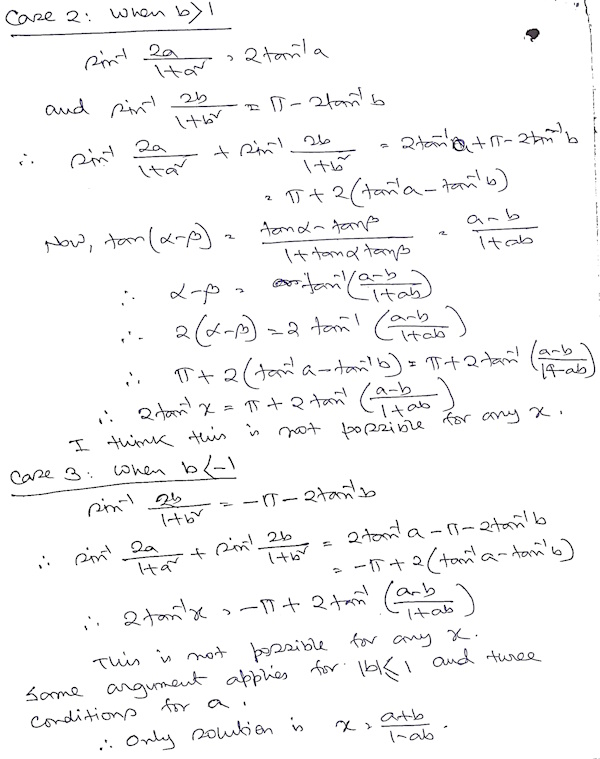 Case 2: When b>1
sin⁻¹ 2a/(1+a²) = 2tan⁻¹a
and sin⁻¹ 2b/(1+b²) = π - 2tan⁻¹b
∴ sin⁻¹ 2a/(1+a²) + sin⁻¹ 2b/(1+b²) = 2tan⁻¹a + π - 2tan⁻¹b
= π + 2(tan⁻¹a - tan⁻¹b)
Now, tan(α-β) = (tanα - tanβ)/(1+tanα tanβ) = (a-b)/(1+ab)
∴ α-β = tan⁻¹((a-b)/(1+ab))
∴ 2(α-β) = 2 tan⁻¹((a-b)/(1+ab))
∴ π + 2(tan⁻¹a - tan⁻¹b) = π + 2tan⁻¹((a-b)/(1+ab))
∴ 2tan⁻¹x = π + 2tan⁻¹((a-b)/(1+ab))
I think this is not possible for any x.
Case 3: When b<-1
sin⁻¹ 2b/(1+b²) = -π - 2tan⁻¹b
∴ sin⁻¹ 2a/(1+a²) + sin⁻¹ 2b/(1+b²) = 2tan⁻¹a - π - 2tan⁻¹b
= -π + 2(tan⁻¹a - tan⁻¹b)
∴ 2tan⁻¹x = -π + 2tan⁻¹((a-b)/(1+ab))
This is not possible for any x.
Same argument applies for |b|≤1 and three
conditions for a.
∴ Only solution is x = (a+b)/(1-ab).